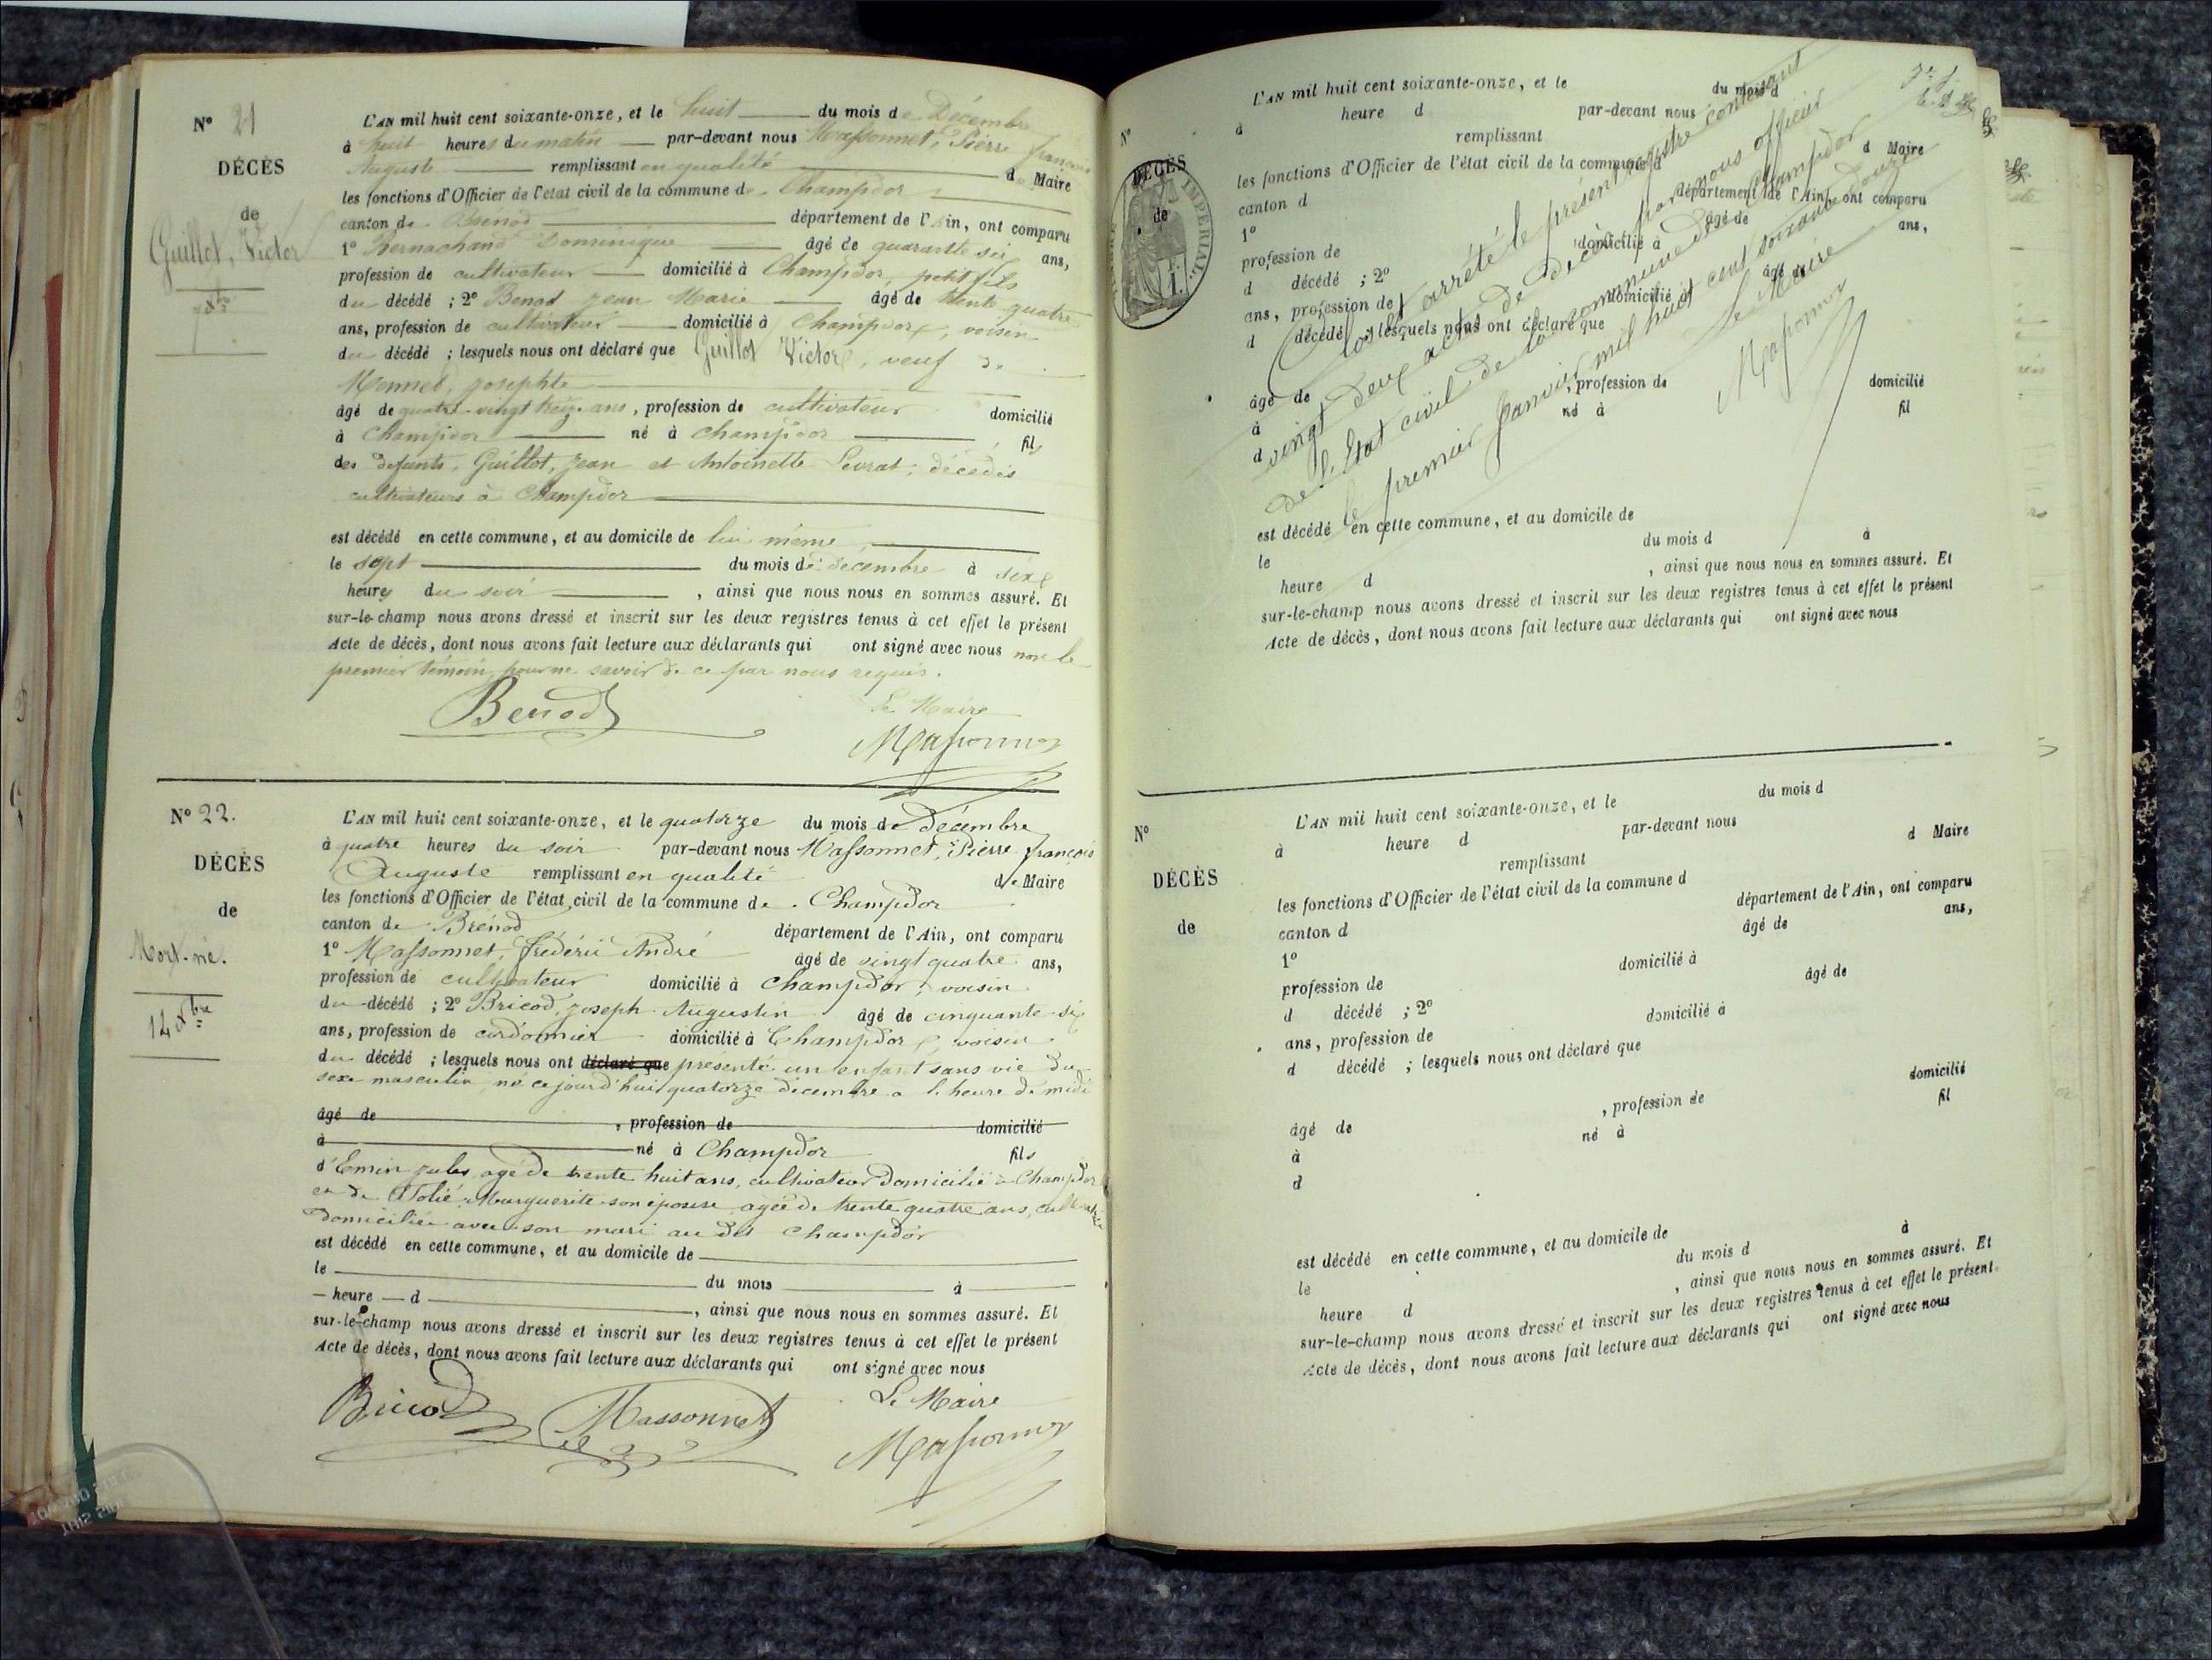 N° 21
DÉCÈS
de
Guillot, Victor
7 Xbre
L'AN mil huit cent soixante-onze, et le huit du mois de Décembre
à huit heures du matin par-devant nous Massonnet, Pierre françois
Auguste remplissant en qualité de Maire
les fonctions d'Officier de l'état civil de la commune de Champdor
canton de Brénod département de l'Ain, ont comparu
1° Dominique âgé de quarante six ans,
profession de cultivateur domicilié à Champdor, petit fils
du décédé ; 2° Benod Jean Marie âgé de trente quatre
ans, profession de cultivateur domicilié à Champdor, voisin
du décédé ; lesquels nous ont déclaré que Guillot Victor, veuf de
Monnet, Josephte
âgé de quatre-vingt treize ans, profession de cultivateur domicilié
à Champdor né à Champdor fils
des defunts, Guillot, Jean et Antoinette décédés
cultivateurs à Champdor
est décédé en cette commune, et au domicile de lui même
le sept du mois de décembre à six
heures du soir , ainsi que nous nous en sommes assuré. Et
sur-le-champ nous avons dressé et inscrit sur les deux registres tenus à cet effet le présent
Acte de décès, dont nous avons fait lecture aux déclarants qui ont signé avec nous non le
premier témoin pour ne savoir de ce par nous requis.
Benod
Le Maire
Massonnet
N° 22.
DÉCÈS
de
Mort-né.
14 Xbre
L'AN mil huit cent soixante-onze, et le quatorze du mois de Décembre
à quatre heures du soir par-devant nous Massonnet, Pierre françois
Auguste remplissant en qualité de Maire
les fonctions d'Officier de l'état civil de la commune de Champdor
canton de Brénod département de l'Ain, ont comparu
1° Massonnet, frédéric André âgé de vingt quatre ans,
profession de cultivateur domicilié à Champdor, voisin
du décédé ; 2° Bricod, Joseph Augustin âgé de cinquante-six
ans, profession de cordonnier domicilié à Champdor, voisin
du décédé ; lesquels nous ont déclaré que présenté un enfant sans vie du
sexe masculin, né ce jourd'hui quatorze décembre a l'heure de midi
âgé de , profession de domicilié
à né à Champdor fils
d'Emin Jules, agé de trente huit ans, cultivateur domicilié à Champdor
et de Marguerite son épouse, agée de trente quatre ans, cultivatrice
domiciliée avec son mari au dit Champdor
est décédé en cette commune, et au domicile de
le du mois à
heure d , ainsi que nous nous en sommes assuré. Et
sur-le-champ nous avons dressé et inscrit sur les deux registres tenus à cet effet le présent
Acte de décès, dont nous avons fait lecture aux déclarants qui ont signé avec nous
Bricod
Massonnet
Le Maire
Massonnet
N°
DÉCÈS
de
TIMBRE IMPÉRIAL
L'AN mil huit cent soixante-onze, et le du mois d
à heure d par-devant nous
remplissant d Maire
les fonctions d'Officier de l'état civil de la commune d
canton d département de l'Ain, ont comparu
1° âgé de ans,
profession de domicilié à
d décédé ; 2° âgé de
ans, profession de domicilié à
d décédé ; lesquels nous ont déclaré que
âgé de , profession de domicilié
à né à fil
d
Clos et arrêté le présent registre contenant
vingt deux actes de décès par nous officier
de l'État civil de la commune de Champdor
le premier Janvier mil huit cent soixante douze
Le Maire
Massonnet
est décédé en cette commune, et au domicile de
le du mois d à
heure d , ainsi que nous nous en sommes assuré. Et
sur-le-champ nous avons dressé et inscrit sur les deux registres tenus à cet effet le présent
Acte de décès, dont nous avons fait lecture aux déclarants qui ont signé avec nous
N°
DÉCÈS
de
L'AN mil huit cent soixante-onze, et le du mois d
à heure d par-devant nous
remplissant d Maire
les fonctions d'Officier de l'état civil de la commune d
canton d département de l'Ain, ont comparu
1° âgé de ans,
profession de domicilié à
d décédé ; 2° âgé de
ans, profession de domicilié à
d décédé ; lesquels nous ont déclaré que
âgé de , profession de domicilié
à né à fil
d
est décédé en cette commune, et au domicile de
le du mois d à
heure d , ainsi que nous nous en sommes assuré. Et
sur-le-champ nous avons dressé et inscrit sur les deux registres tenus à cet effet le présent
Acte de décès, dont nous avons fait lecture aux déclarants qui ont signé avec nous